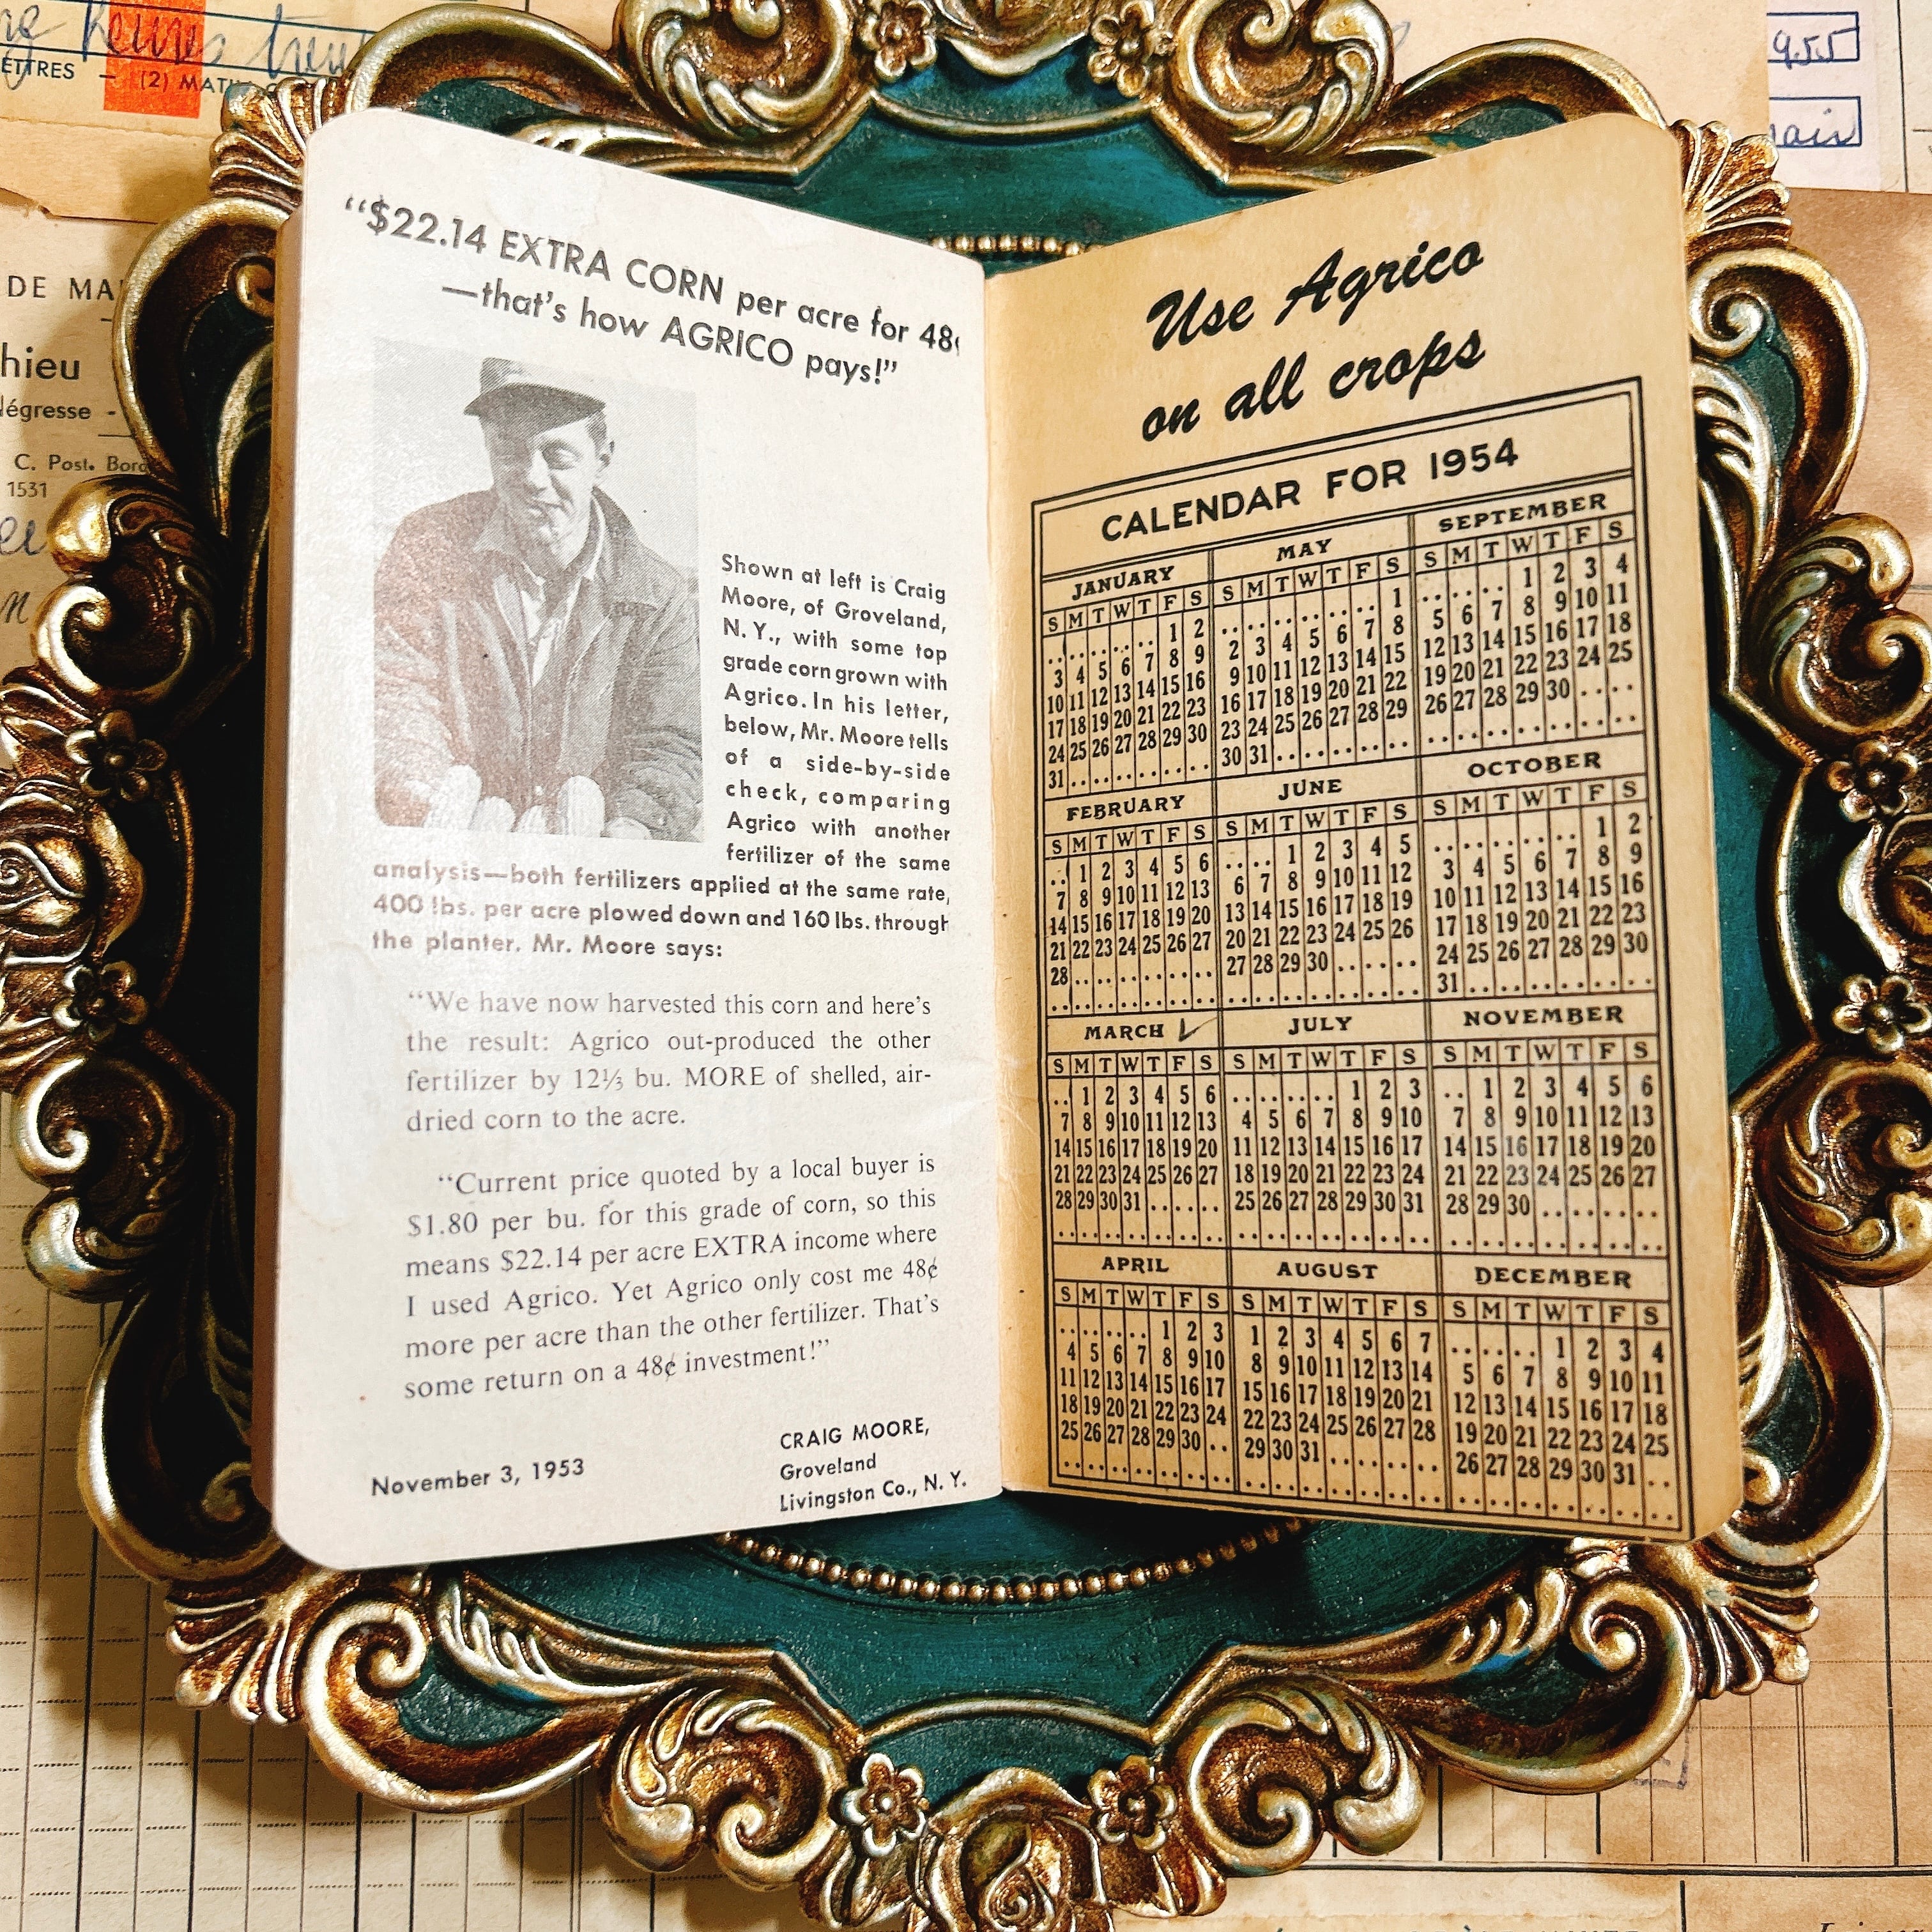 heures
ETTRES - (2) MATI
955
DE MA
hieu
légresse -
C. Post. Bord
1531
“$22.14 EXTRA CORN per acre for 48¢
—that’s how AGRICO pays!”
Shown at left is Craig
Moore, of Groveland,
N. Y., with some top
grade corn grown with
Agrico. In his letter,
below, Mr. Moore tells
of a side-by-side
check, comparing
Agrico with another
fertilizer of the same
analysis—both fertilizers applied at the same rate,
400 lbs. per acre plowed down and 160 lbs. through
the planter. Mr. Moore says:
“We have now harvested this corn and here’s
the result: Agrico out-produced the other
fertilizer by 12⅓ bu. MORE of shelled, air-
dried corn to the acre.
“Current price quoted by a local buyer is
$1.80 per bu. for this grade of corn, so this
means $22.14 per acre EXTRA income where
I used Agrico. Yet Agrico only cost me 48¢
more per acre than the other fertilizer. That’s
some return on a 48¢ investment!”
CRAIG MOORE,
November 3, 1953
Groveland
Livingston Co., N. Y.
Use Agrico
on all crops
CALENDAR FOR 1954
JANUARY
S M T W T F S
.. .. .. .. .. 1 2
3 4 5 6 7 8 9
10 11 12 13 14 15 16
17 18 19 20 21 22 23
24 25 26 27 28 29 30
31 .. .. .. .. .. ..
FEBRUARY
S M T W T F S
.. 1 2 3 4 5 6
7 8 9 10 11 12 13
14 15 16 17 18 19 20
21 22 23 24 25 26 27
28 .. .. .. .. .. ..
.. .. .. .. .. .. ..
MARCH
S M T W T F S
.. 1 2 3 4 5 6
7 8 9 10 11 12 13
14 15 16 17 18 19 20
21 22 23 24 25 26 27
28 29 30 31 .. .. ..
.. .. .. .. .. .. ..
APRIL
S M T W T F S
.. .. .. .. 1 2 3
4 5 6 7 8 9 10
11 12 13 14 15 16 17
18 19 20 21 22 23 24
25 26 27 28 29 30 ..
.. .. .. .. .. .. ..
MAY
S M T W T F S
.. .. .. .. .. .. 1
2 3 4 5 6 7 8
9 10 11 12 13 14 15
16 17 18 19 20 21 22
23 24 25 26 27 28 29
30 31 .. .. .. .. ..
JUNE
S M T W T F S
.. .. 1 2 3 4 5
6 7 8 9 10 11 12
13 14 15 16 17 18 19
20 21 22 23 24 25 26
27 28 29 30 .. .. ..
.. .. .. .. .. .. ..
JULY
S M T W T F S
.. .. .. .. 1 2 3
4 5 6 7 8 9 10
11 12 13 14 15 16 17
18 19 20 21 22 23 24
25 26 27 28 29 30 31
.. .. .. .. .. .. ..
AUGUST
S M T W T F S
1 2 3 4 5 6 7
8 9 10 11 12 13 14
15 16 17 18 19 20 21
22 23 24 25 26 27 28
29 30 31 .. .. .. ..
.. .. .. .. .. .. ..
SEPTEMBER
S M T W T F S
.. .. .. 1 2 3 4
5 6 7 8 9 10 11
12 13 14 15 16 17 18
19 20 21 22 23 24 25
26 27 28 29 30 .. ..
.. .. .. .. .. .. ..
OCTOBER
S M T W T F S
.. .. .. .. .. 1 2
3 4 5 6 7 8 9
10 11 12 13 14 15 16
17 18 19 20 21 22 23
24 25 26 27 28 29 30
31 .. .. .. .. .. ..
NOVEMBER
S M T W T F S
.. 1 2 3 4 5 6
7 8 9 10 11 12 13
14 15 16 17 18 19 20
21 22 23 24 25 26 27
28 29 30 .. .. .. ..
.. .. .. .. .. .. ..
DECEMBER
S M T W T F S
.. .. .. 1 2 3 4
5 6 7 8 9 10 11
12 13 14 15 16 17 18
19 20 21 22 23 24 25
26 27 28 29 30 31 ..
.. .. .. .. .. .. ..